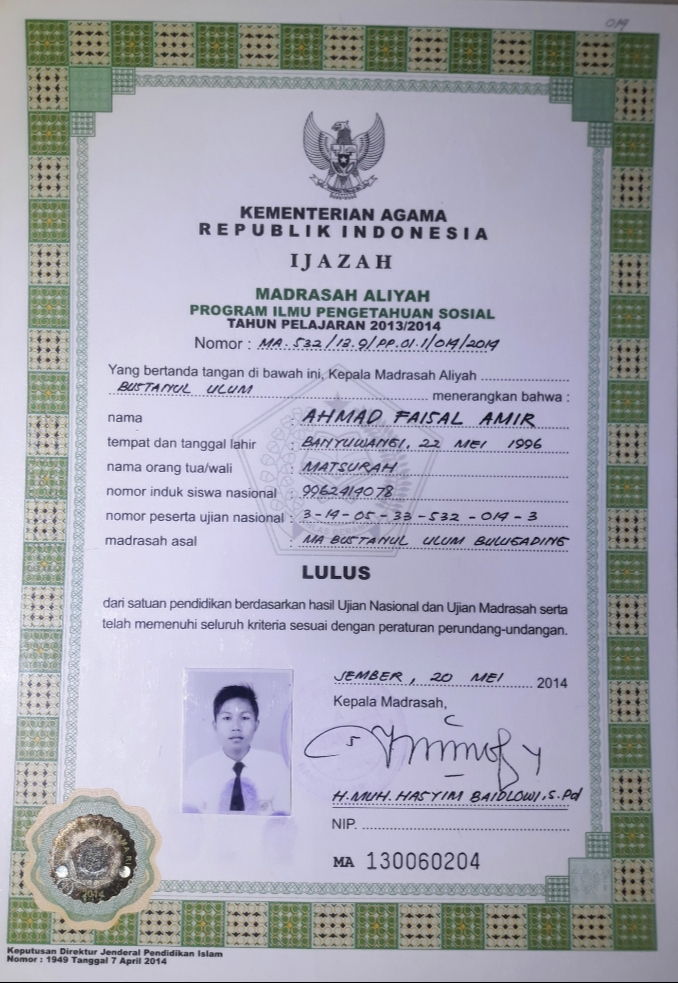 019
KEMENTERIAN AGAMA
REPUBLIK INDONESIA
IJAZAH
MADRASAH ALIYAH
PROGRAM ILMU PENGETAHUAN SOSIAL
TAHUN PELAJARAN 2013/2014
Nomor : MA.532/13.9/PP.01.1/019/2014
Yang bertanda tangan di bawah ini, Kepala Madrasah Aliyah
BUSTANUL ULUM menerangkan bahwa :
nama : AHMAD FAISAL AMIR
tempat dan tanggal lahir : BANYUWANGI, 22 MEI 1996
nama orang tua/wali : MATSURAH
nomor induk siswa nasional : 9962414078
nomor peserta ujian nasional : 3-14-05-33-532-019-3
madrasah asal : MA BUSTANUL ULUM BULUGADING
LULUS
dari satuan pendidikan berdasarkan hasil Ujian Nasional dan Ujian Madrasah serta
telah memenuhi seluruh kriteria sesuai dengan peraturan perundang-undangan.
JEMBER, 20 MEI 2014
Kepala Madrasah,
H. MUH. HASYIM BAIDLOWI, S.Pd
NIP.
MA 130060204
Keputusan Direktur Jenderal Pendidikan Islam
Nomor : 1949 Tanggal 7 April 2014